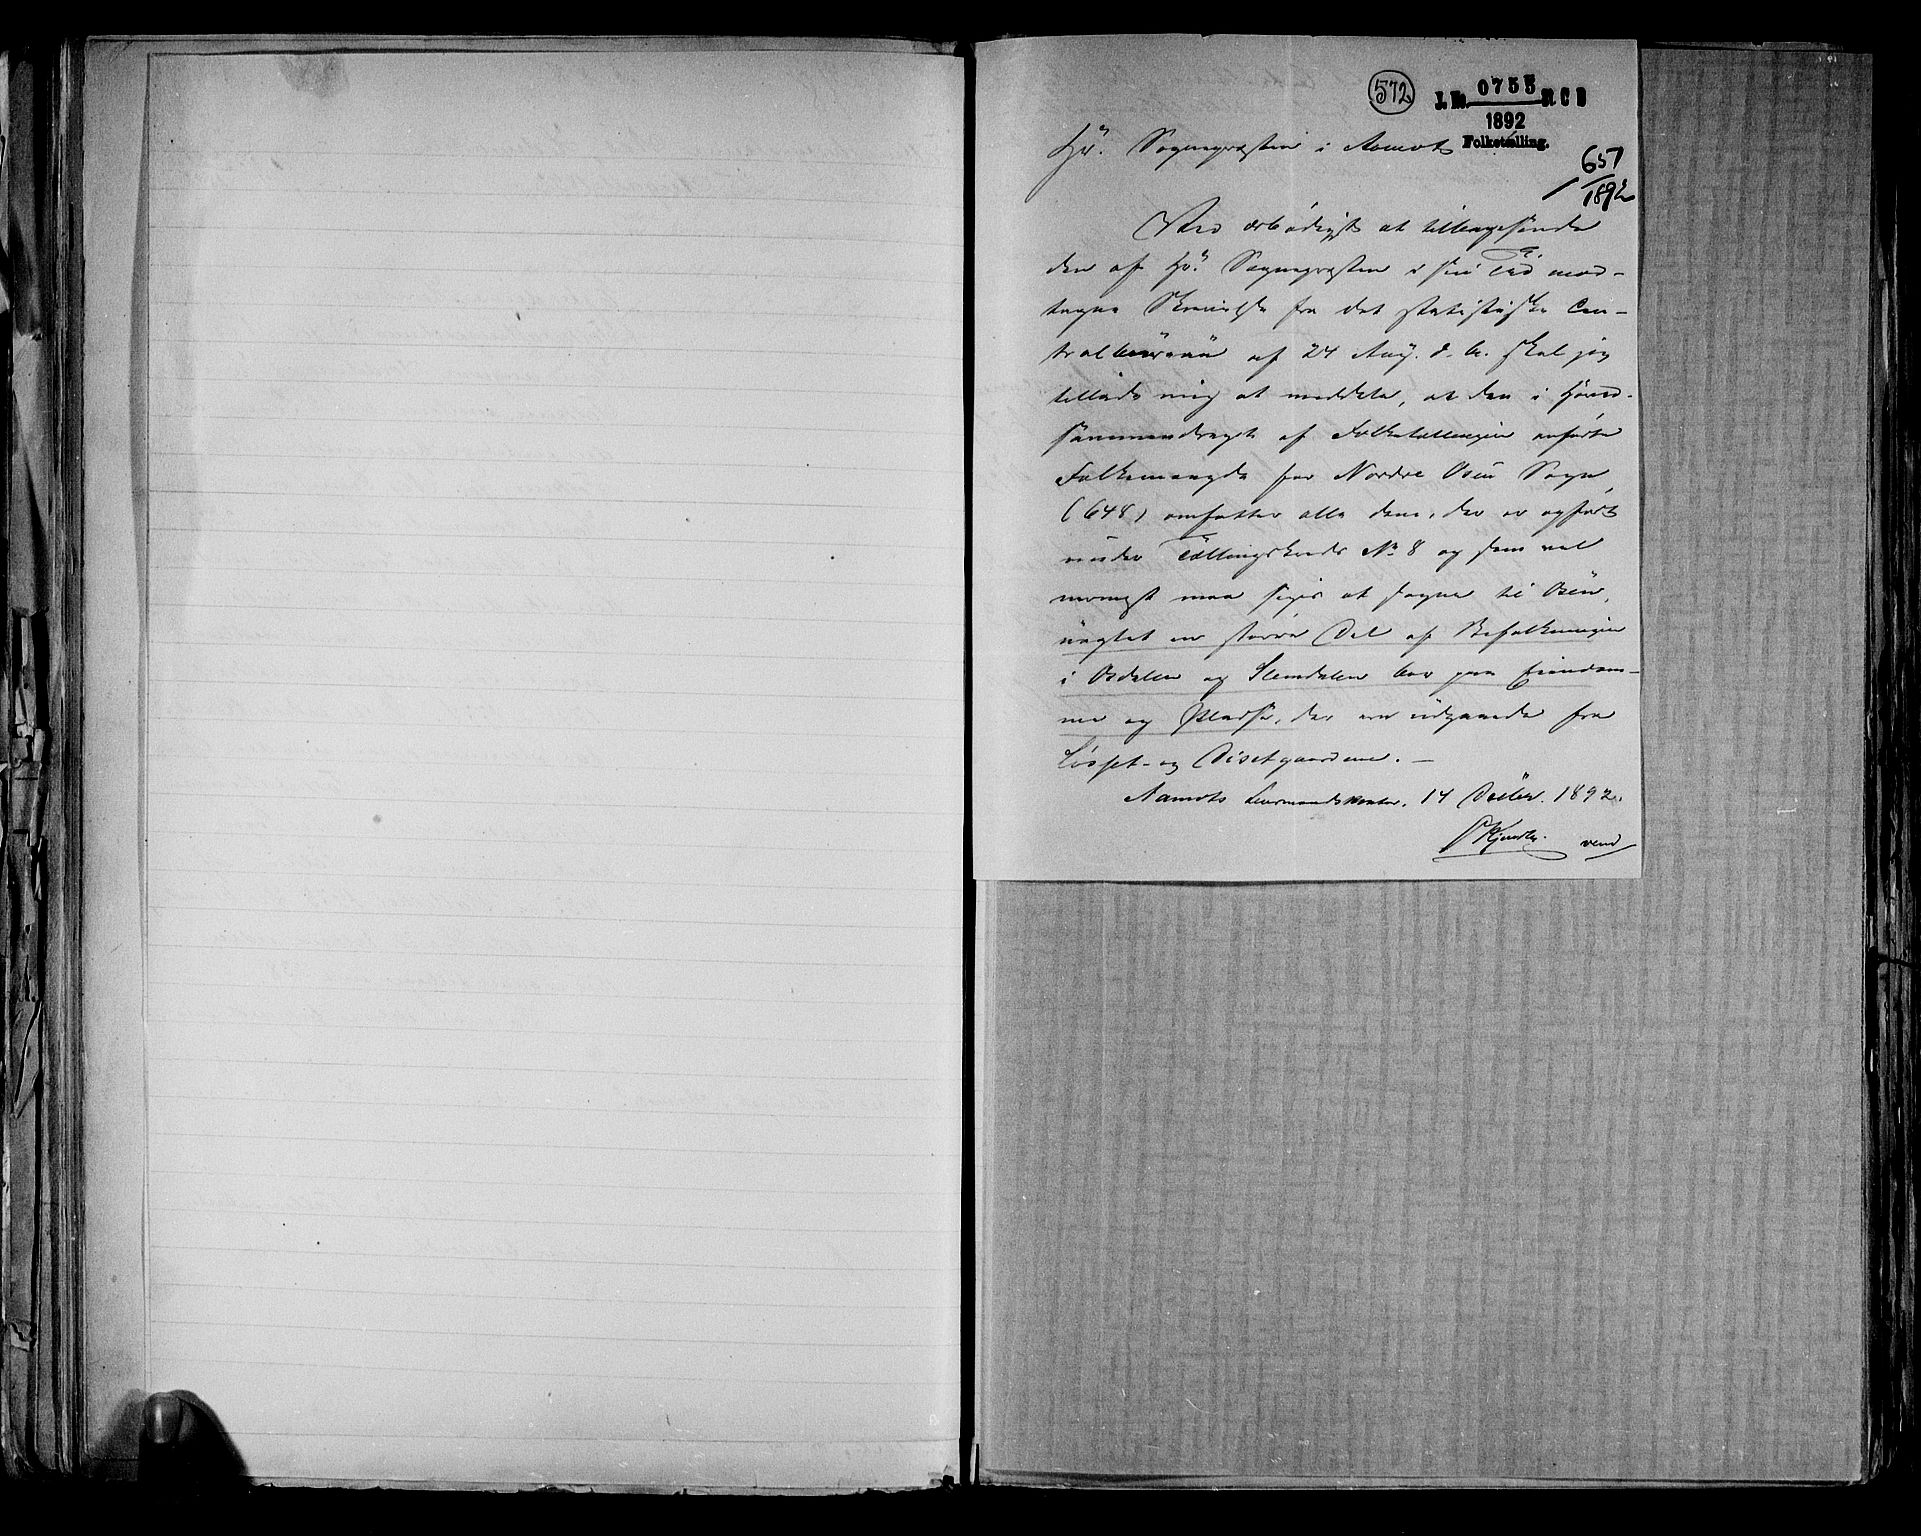 572
J. No. 0755 R C B
1892
Folketælling.
Hr. Sognepræsten i Aamot
657
1892
Ved ærbødigst at tilbagesende
den af Hr. Sognepræsten i sin Tid mod-
tagne Skrivelse fra det statistiske Cen-
tralbureau af 24 Aug. d. A. skal jeg
tillade mig at meddele, at den i Hoved-
sammendraget af Folketællingen anførte
Folkemængde for Nordre Osen Sogn
(648) omfatter alle dem, der er opført
under Tællingskreds No 8 og som vel
nærmest maa siges at sogne til Osen,
uagtet en større Del af Befolkningen
i Osdalen og Slemdalen bor paa Eiendom-
me og Pladse, der ere udgaaede fra
Løsset- og Disetgaardene. —
Aamots Lensmandskontor, 14 1892.
vend